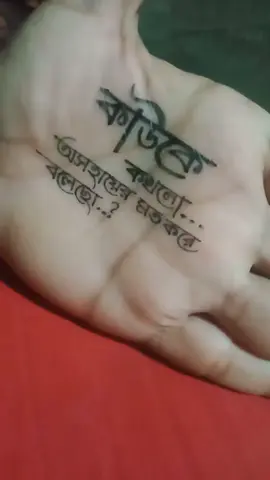 কাউকে
কখনো...
অসহায়ের মত করে
বলেছো..?